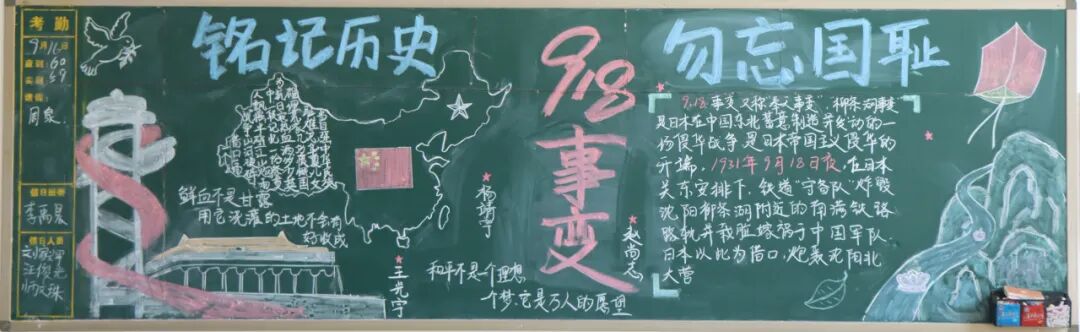 考勤
9月16日
应到:60
实到:59
请假:
周泉
值日班委
李禹昊
值日人员
铭记历史
鲜血不是甘露
用它浇灌的土地不会有
好收成
9.18
事变
杨靖宇
赵尚志
王光宇
和平不是一个理想
一个梦,它是万人的愿望
勿忘国耻
9.18事变又称奉天事变、柳条湖事变
是日本在中国东北蓄意制造并发动的一
场侵华战争是日本帝国主义侵华的
开端,1931年9月18日夜,在日本
关东安排下,铁道"守备队"炸毁
沈阳柳条湖附近的南满铁路
路轨并栽赃嫁祸于中国军队
日本以此为借口,炮轰沈阳北
大营